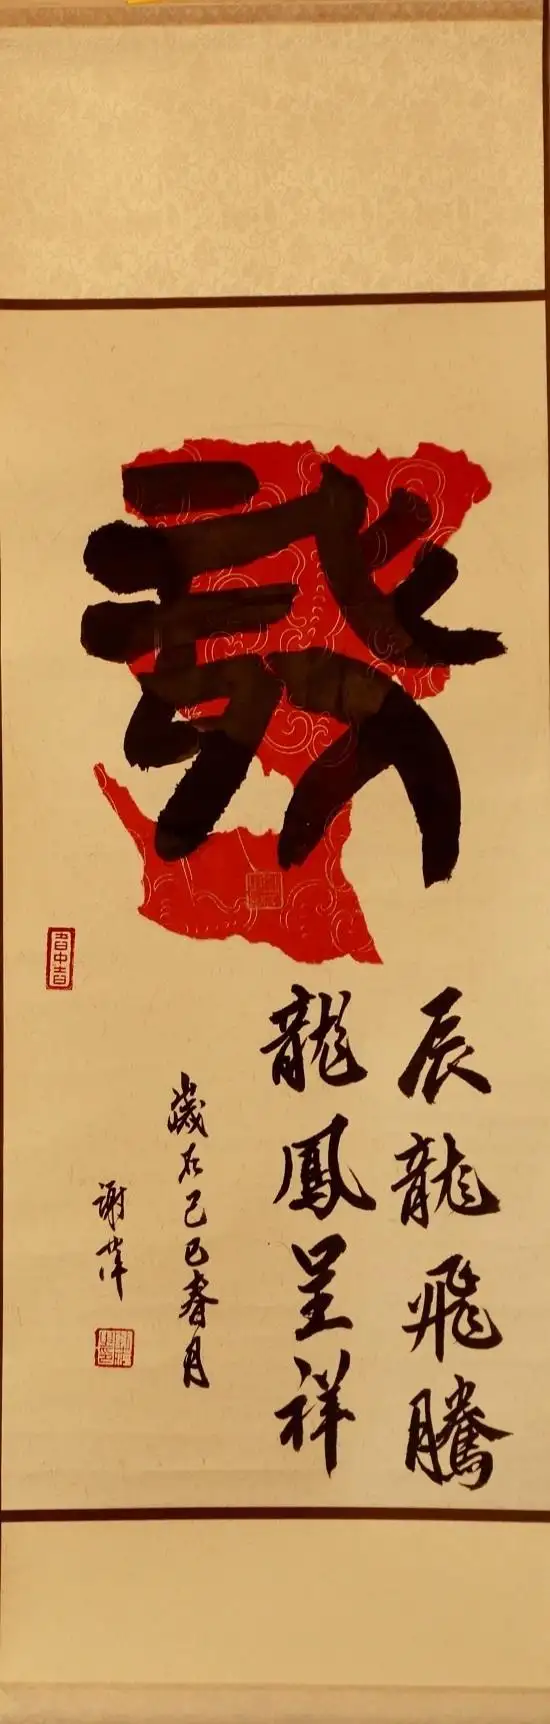 辰龍飛騰
龍鳳呈祥
歲在己巳春月
謝